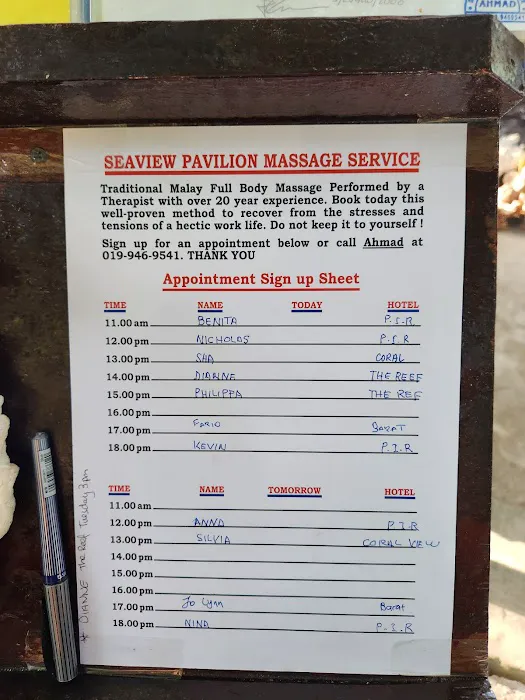 (AHMAD)
SEAVIEW PAVILION MASSAGE SERVICE
Traditional Malay Full Body Massage Performed by a
Therapist with over 20 year experience. Book today this
well-proven method to recover from the stresses and
tensions of a hectic work life. Do not keep it to yourself !
Sign up for an appointment below or call Ahmad at
019-946-9541. THANK YOU
Appointment Sign up Sheet
TIME NAME TODAY HOTEL
11.00 am BENITA P.I.R
12.00 pm NICHOLAS P.I.R
13.00 pm SHA CORAL
14.00 pm DIANNE THE REEF
15.00 pm PHILIPPA THE REF
16.00 pm
17.00 pm FARIO BARAT
18.00 pm KEVIN P.I.R
TIME NAME TOMORROW HOTEL
11.00 am
12.00 pm ANNA P.I.R
13.00 pm SILVIA CORAL VIEW
14.00 pm
15.00 pm
16.00 pm
17.00 pm Jo Lynn Barat
18.00 pm NINA P.I.R
* DIANNE The Reef Tuesday 3pm